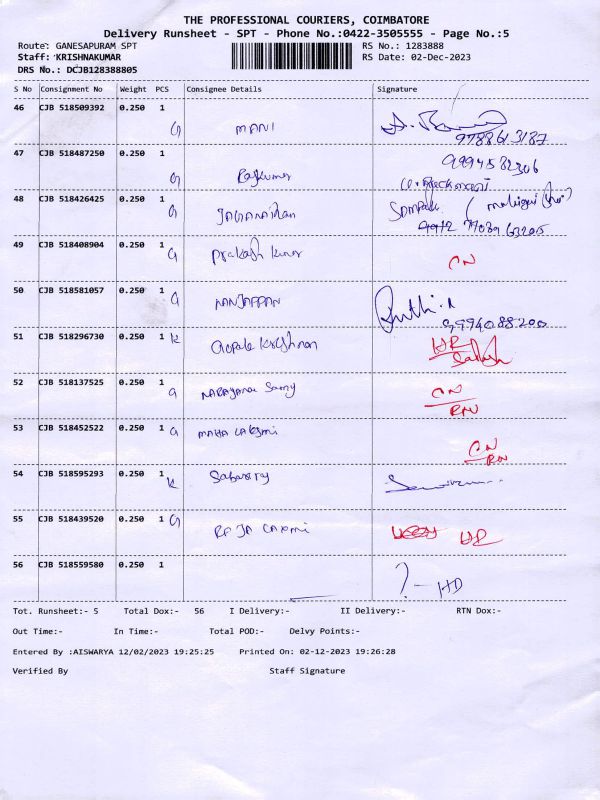 THE PROFESSIONAL COURIERS, COIMBATORE
Delivery Runsheet - SPT - Phone No.:0422-3505555 - Page No.:5
Route: GANESAPURAM SPT RS No.: 1283888
Staff: KRISHNAKUMAR RS Date: 02-Dec-2023
DRS No.: DCJB128388805
S No Consignment No Weight PCS Consignee Details Signature
46 CJB 518509392 0.250 1
MANI 9788613187
47 CJB 518487250 0.250 1 9994582306
Rajkumar
48 CJB 518426425 0.250 1
JAGANATHAN
49 CJB 518408904 0.250 1
Prakash kumar CN
50 CJB 518581057 0.250 1
NANJAPPAN 9994088200
51 CJB 518296730 0.250 1 K HR
Gopala Krishnan Sathish
52 CJB 518137525 0.250 1
NARAYANA Samy CN
RN
53 CJB 518452522 0.250 1
MAHA LAKSMI CN
RN
54 CJB 518595293 0.250 1
K Sabarraj
55 CJB 518439520 0.250 1 G
RAJA LAXMI HR
56 CJB 518559580 0.250 1
? - HD
Tot. Runsheet:- 5 Total Dox:- 56 I Delivery:- II Delivery:- RTN Dox:-
Out Time:- In Time:- Total POD:- Delvy Points:-
Entered By :AISWARYA 12/02/2023 19:25:25 Printed On: 02-12-2023 19:26:28
Verified By Staff Signature